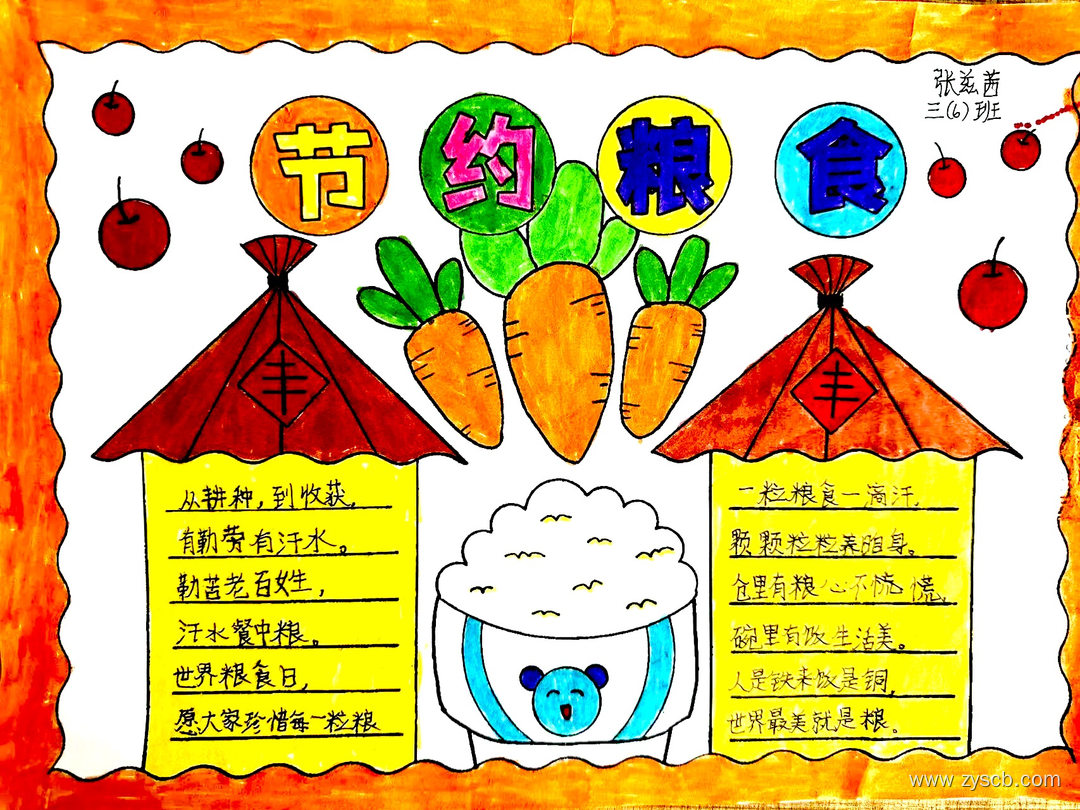 节约粮食
张兹茜
三(6)班
丰
丰
从耕种,到收获,
有勤劳有汗水。
勤苦老百姓,
汗水餐中粮。
世界粮食日,
愿大家珍惜每一粒粮
一粒粮食一滴汗,
颗颗粒粒养咱身。
仓里有粮心不慌慌,
碗里有饭生活美。
人是铁来饭是铜,
世界最美就是粮。
www.zyscb.com